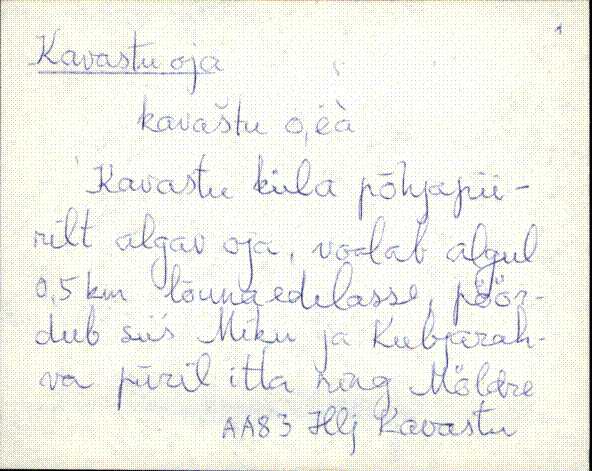 1
Kavastu oja
kavaštu o͔eà
Kavastu küla põhjapii-
rilt algav oja, voolab algul
0,5 km lõunaedelasse, pöör-
dub siis Miku ja Kubjarah-
va piiril itta ning Möldre
AA83 Hlj Kavastu